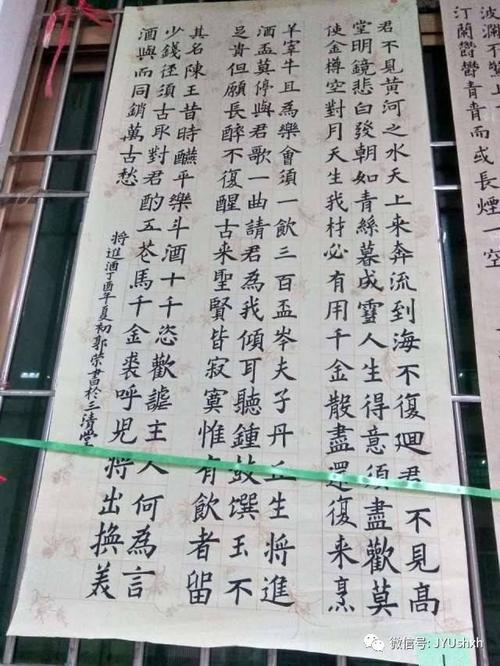 波瀾不驚上
汀蘭鬱鬱青青而或長煙一空
君不見黃河之水天上来奔流到海不復迴君不見高
堂明鏡悲白發朝如青絲暮成雪人生得意須盡歡莫
使金樽空對月天生我材必有用千金散盡還復来烹
羊宰牛且為樂會須一飲三百盃岑夫子丹丘生將進
酒盃莫停與君歌一曲請君為我傾耳聽鍾鼓馔玉不
足貴但願長醉不復醒古来聖賢皆寂寞惟有飲者留
其名陳王昔時醼平樂斗酒十千恣歡謔主人何為言
少錢徑須古取對君酌五花馬千金裘呼兒將出換美
酒與而同銷萬古愁
將進酒丁酉年夏初郭榮書於三清堂
微信号: JYUshxh